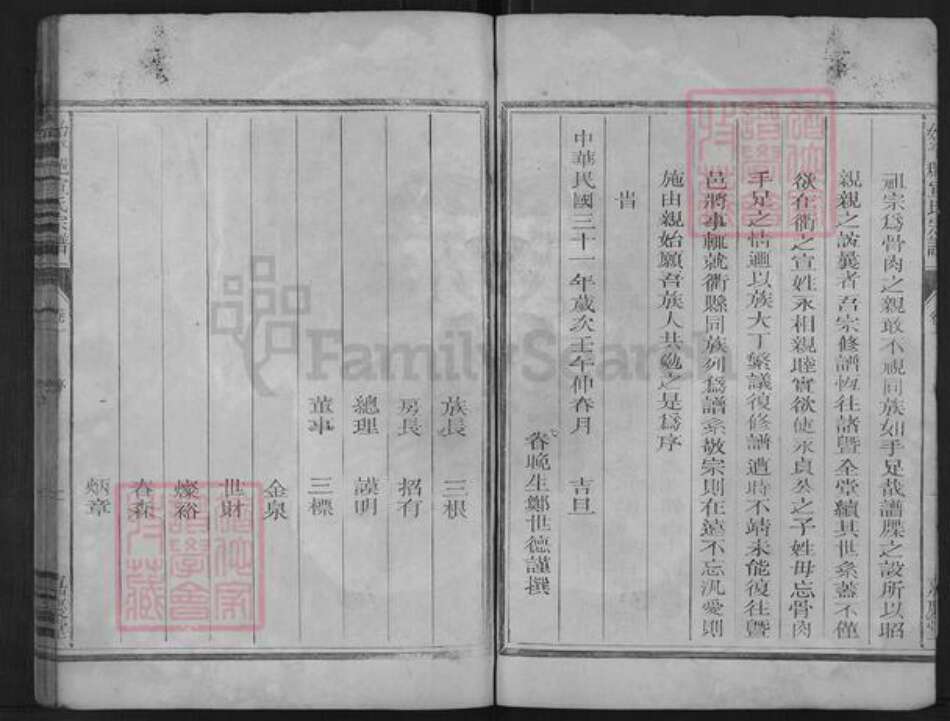 祖宗爲骨肉之親敢不視同族如手足哉譜牒之設所以昭
親親之義者吾宗修譜恆往諸暨全堂續其世系蓋不僅
欲在衢之宣姓永相親睦實欲使永貞公之子姓毋忘骨肉
手足之情邇以族大丁繁議復修譜遭時不靖未能復往暨
邑將事輒就衢縣同族列爲譜系敬宗則在遠不忘汎愛則
施由親始願吾族人共勉之是爲序
旹
中華民國三十一年歲次壬午仲春月 吉旦
眷晚生鄭世德謹撰
族長 三根
房長 招有
總理 謨明
董事 三標
金泉
世財
燦裕
春森
炳章
FamilySearch